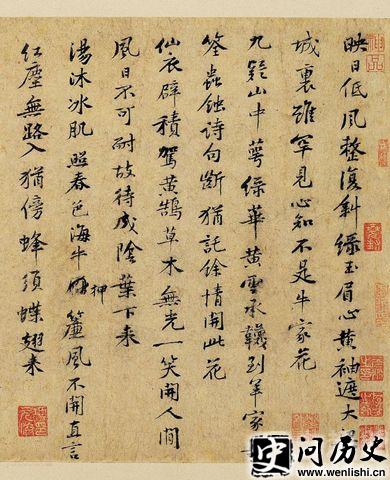 映日低風整復斜綠玉眉心黃袖遮大
城裏雖罕見心知不是牛家花
九疑山中萼綠華黃雲承韈到羊家
筌蟲蝕詩句斷猶託餘情開此花
仙衣襞積駕黃鵠草木無光一笑開人間
風日不可耐故待成陰葉下来
湯沐冰肌照春色海牛押簾風不開直言
紅塵無路入猶傍蜂須蝶翅来
问历史
www.wenlishi.cn